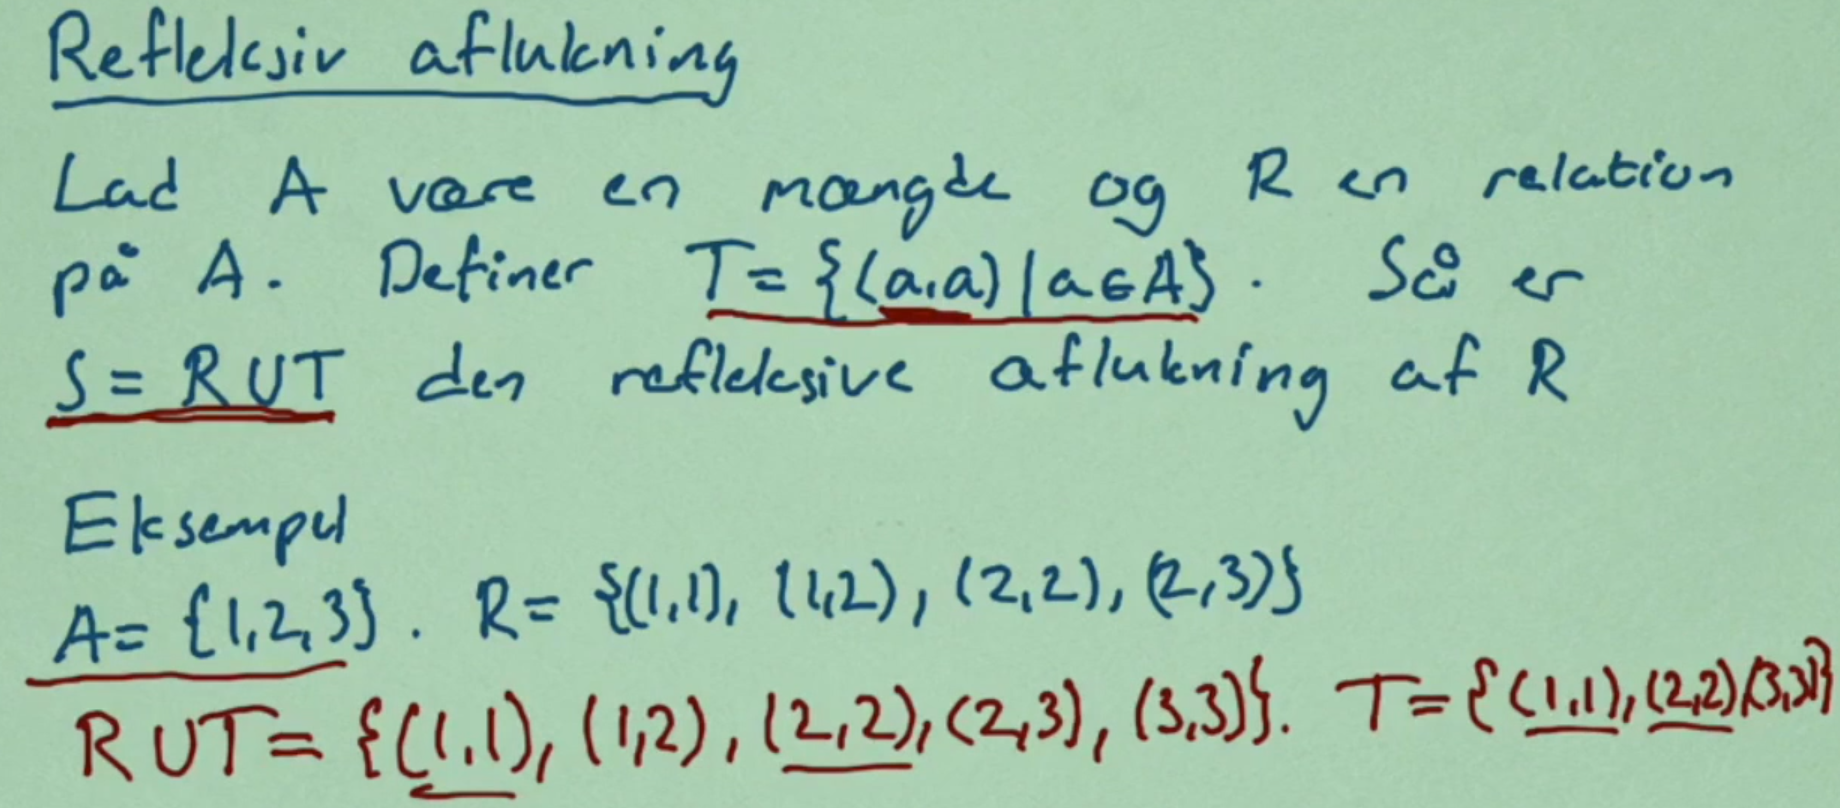 Refleksiv aflukning
Lad A være en mængde og R en relation
på A. Definer T = {(a,a) | a ∈ A}. Så er
S = R ∪ T den refleksive aflukning af R
Eksempel
A = {1,2,3}. R = {(1,1), (1,2), (2,2), (2,3)}
R ∪ T = {(1,1), (1,2), (2,2), (2,3), (3,3)}. T = {(1,1), (2,2) (3,3)}